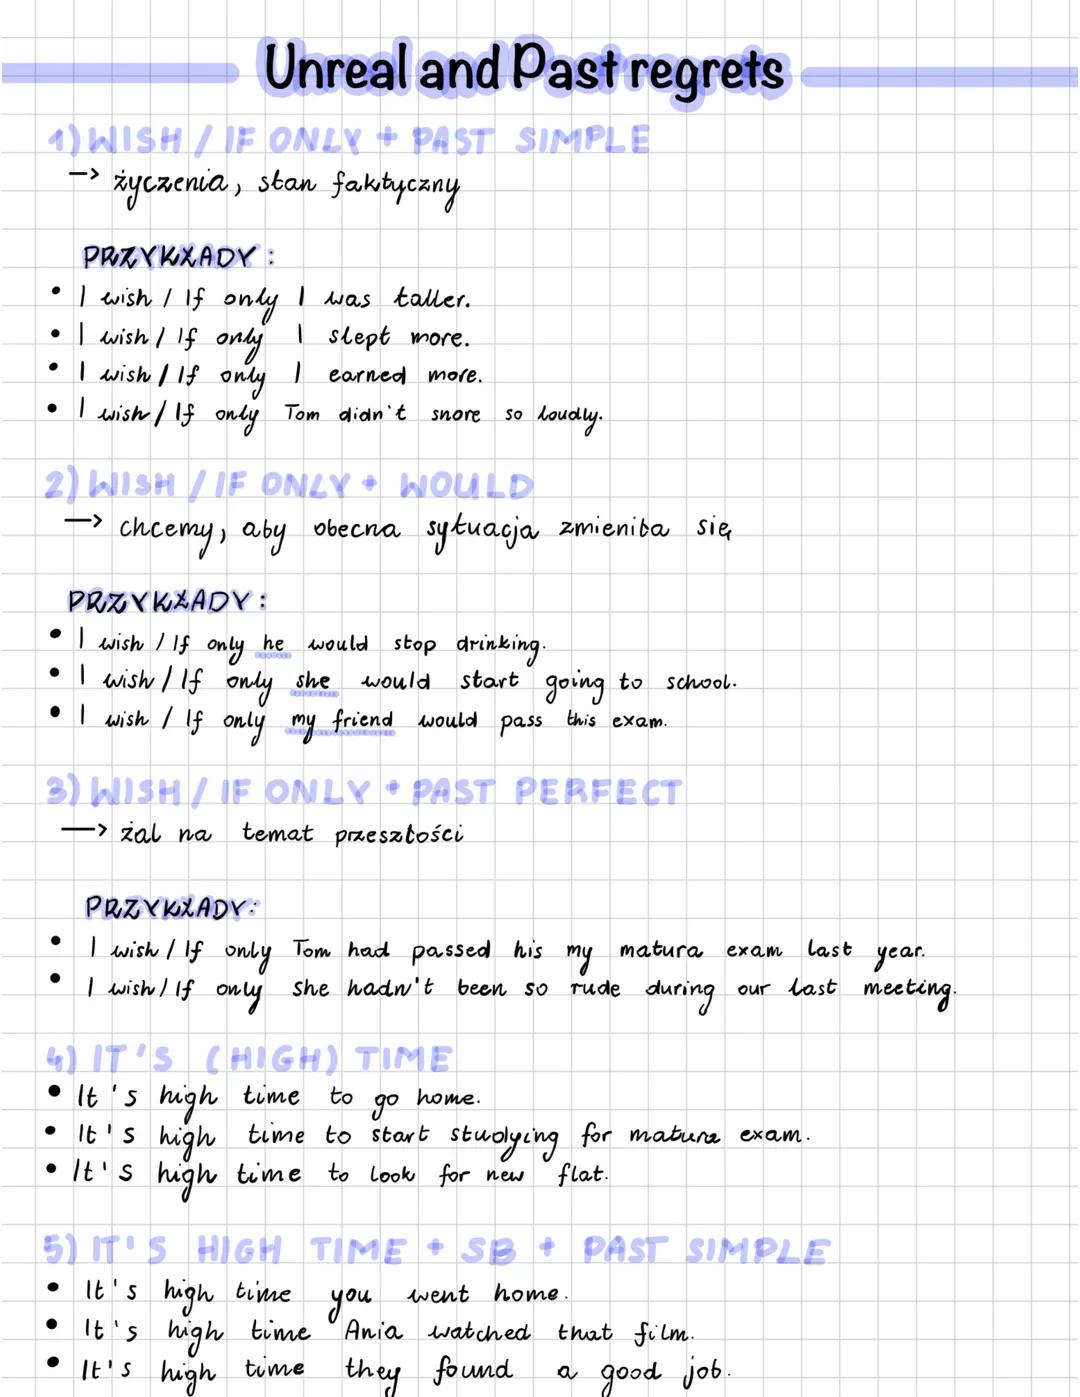 Unreal and Past regrets
1) WISH / IF ONLY + PAST SIMPLE
-> życzenia, stan faktyczny
PRZYKŁADY :
• I wish / If only I was taller.
• I wish / If only I slept more.
• I wish / If only I earned more.
• I wish / If only Tom didn't snore so loudly.
2) WISH / IF ONLY + WOULD
-> chcemy, aby obecna sytuacja zmieniła się
PRZYKŁADY :
• I wish / If only he would stop drinking.
• I wish / If only she would start going to school.
• I wish / If only my friend would pass this exam.
3) WISH / IF ONLY + PAST PERFECT
-> żal na temat przeszłości
PRZYKŁADY:
• I wish / If only Tom had passed his my matura exam last year.
• I wish / If only she hadn't been so rude during our last meeting.
4) IT'S (HIGH) TIME
• It's high time to go home.
• It's high time to start studying for matura exam.
• It's high time to look for new flat.
5) IT'S HIGH TIME + SB + PAST SIMPLE
• It's high time you went home.
• It's high time Ania watched that film.
• It's high time they found a good job.